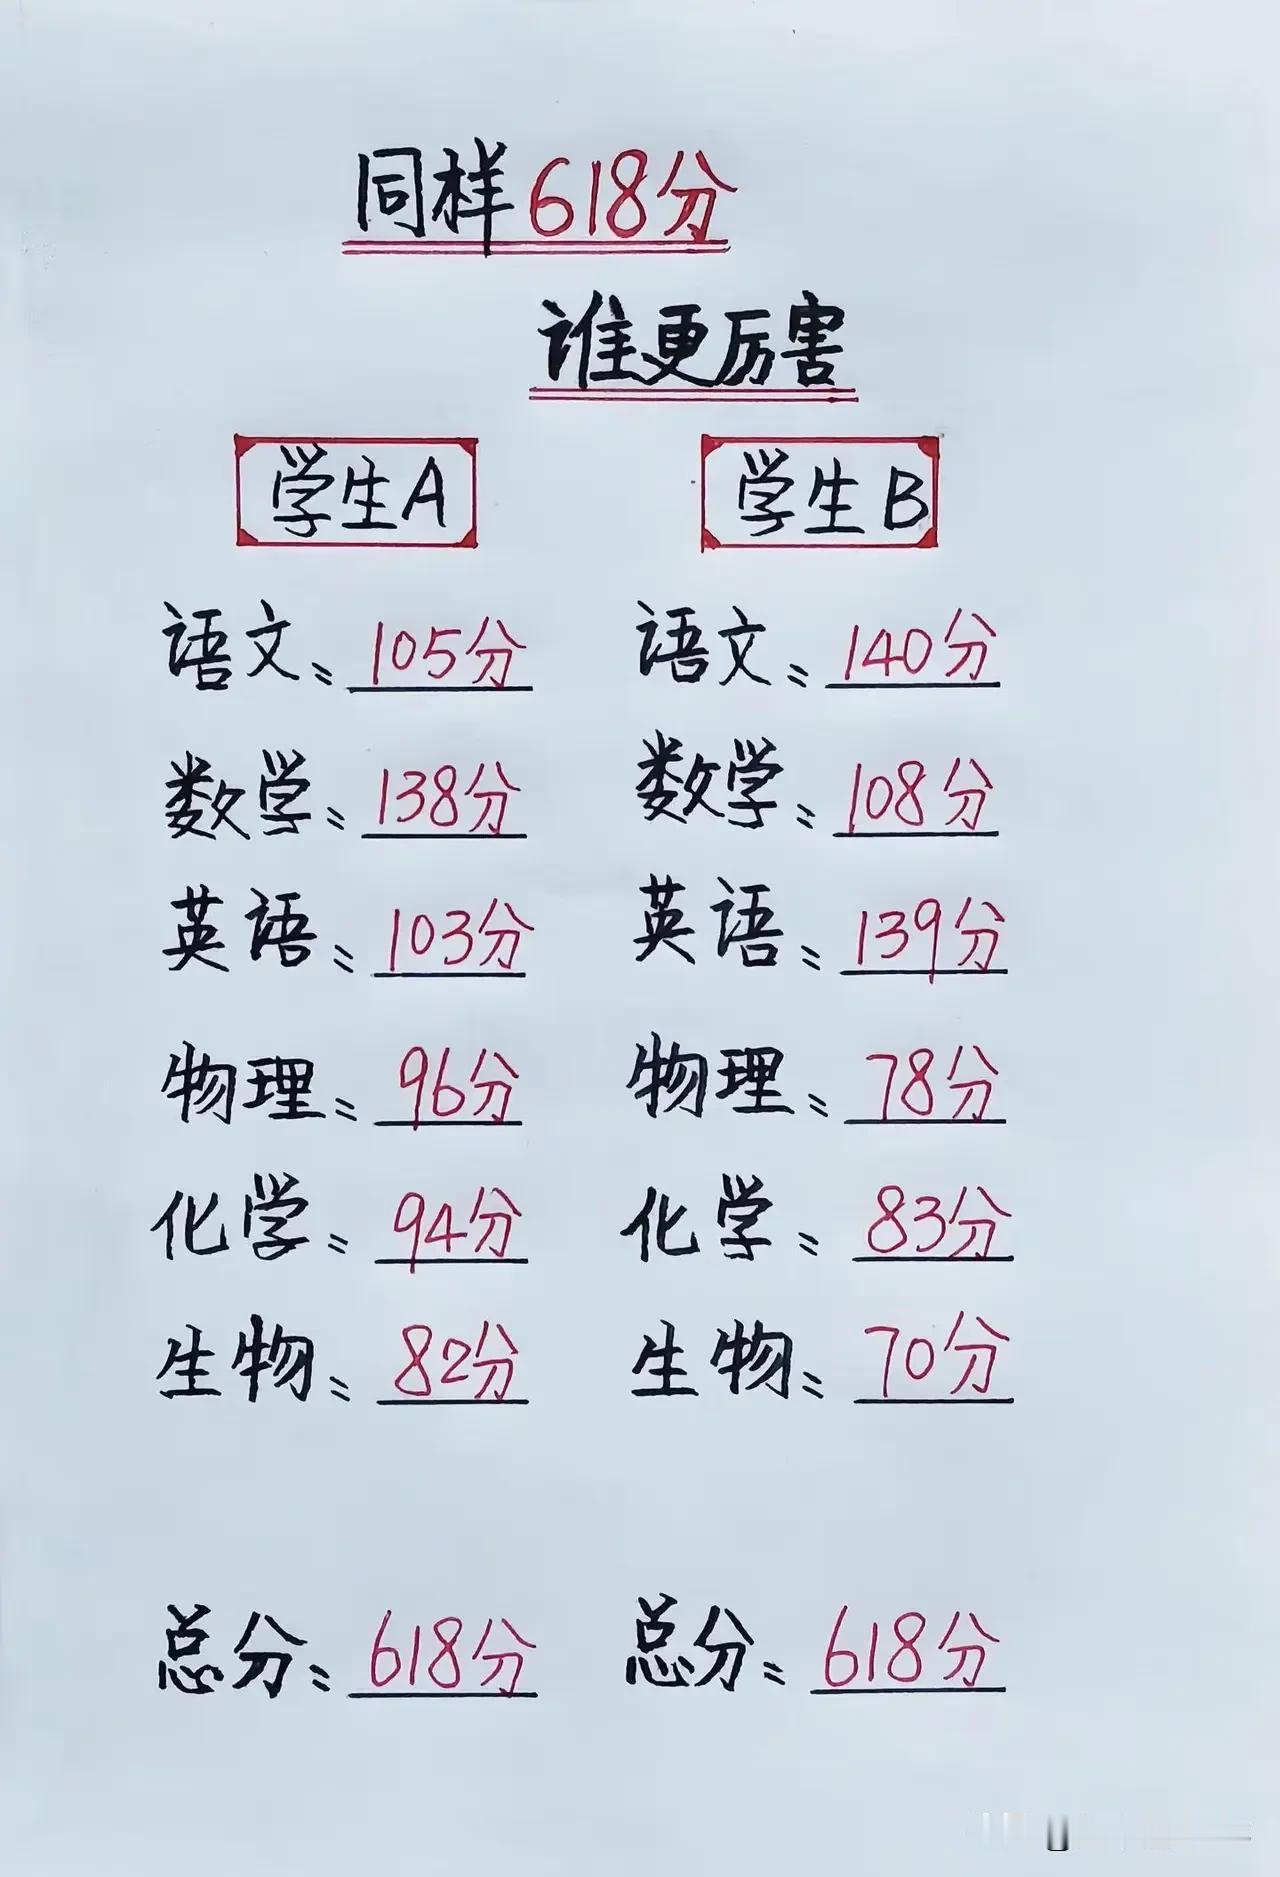 同样618分
谁更厉害
学生A 学生B
语文: 105分 语文: 140分
数学: 138分 数学: 108分
英语: 103分 英语: 139分
物理: 96分 物理: 78分
化学: 94分 化学: 83分
生物: 82分 生物: 70分
总分: 618分 总分: 618分